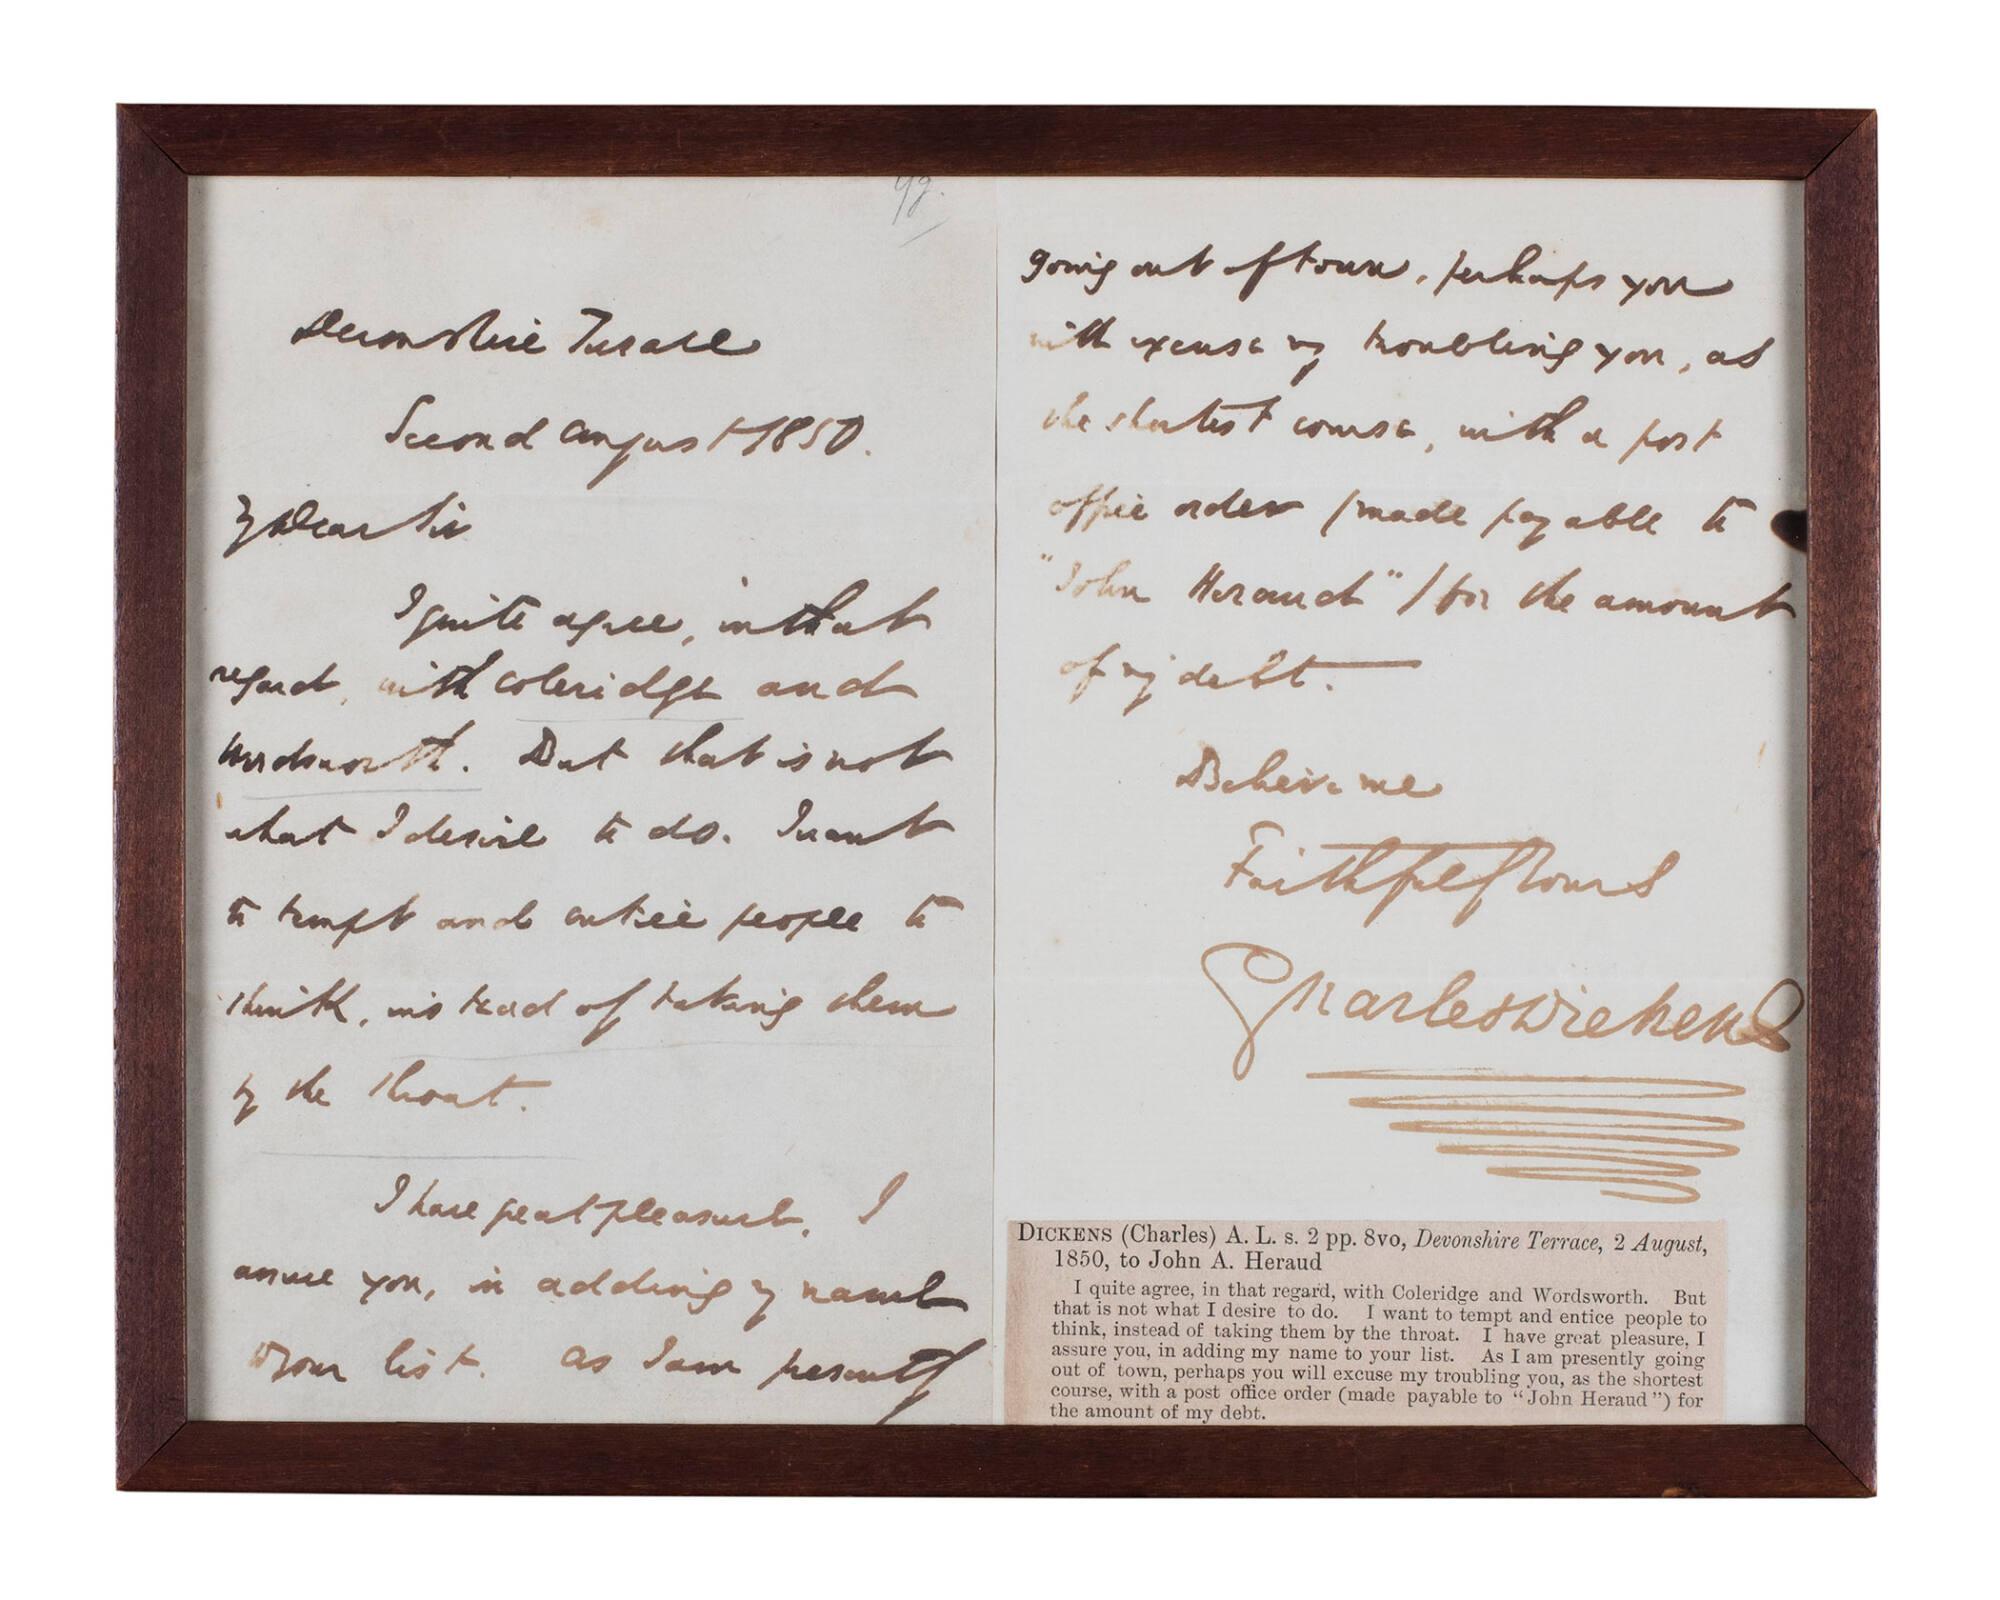 99.
Devonshire Terrace
Second August 1850.
My Dear Sir
I quite agree, in that
regard, with Coleridge and
Wordsworth. But that is not
what I desire to do. I want
to tempt and entice people to
think, instead of taking them
by the throat.
I have great pleasure, I
assure you, in adding my name
to your list. As I am presently
going out of town, perhaps you
will excuse my troubling you, as
the shortest course, with a post
office order (made payable to
"John Heraud") for the amount
of my debt.
Believe me
Faithfully Yours
Charles Dickens
DICKENS (Charles) A. L. s. 2 pp. 8vo, Devonshire Terrace, 2 August,
1850, to John A. Heraud
I quite agree, in that regard, with Coleridge and Wordsworth. But
that is not what I desire to do. I want to tempt and entice people to
think, instead of taking them by the throat. I have great pleasure, I
assure you, in adding my name to your list. As I am presently going
out of town, perhaps you will excuse my troubling you, as the shortest
course, with a post office order (made payable to "John Heraud") for
the amount of my debt.